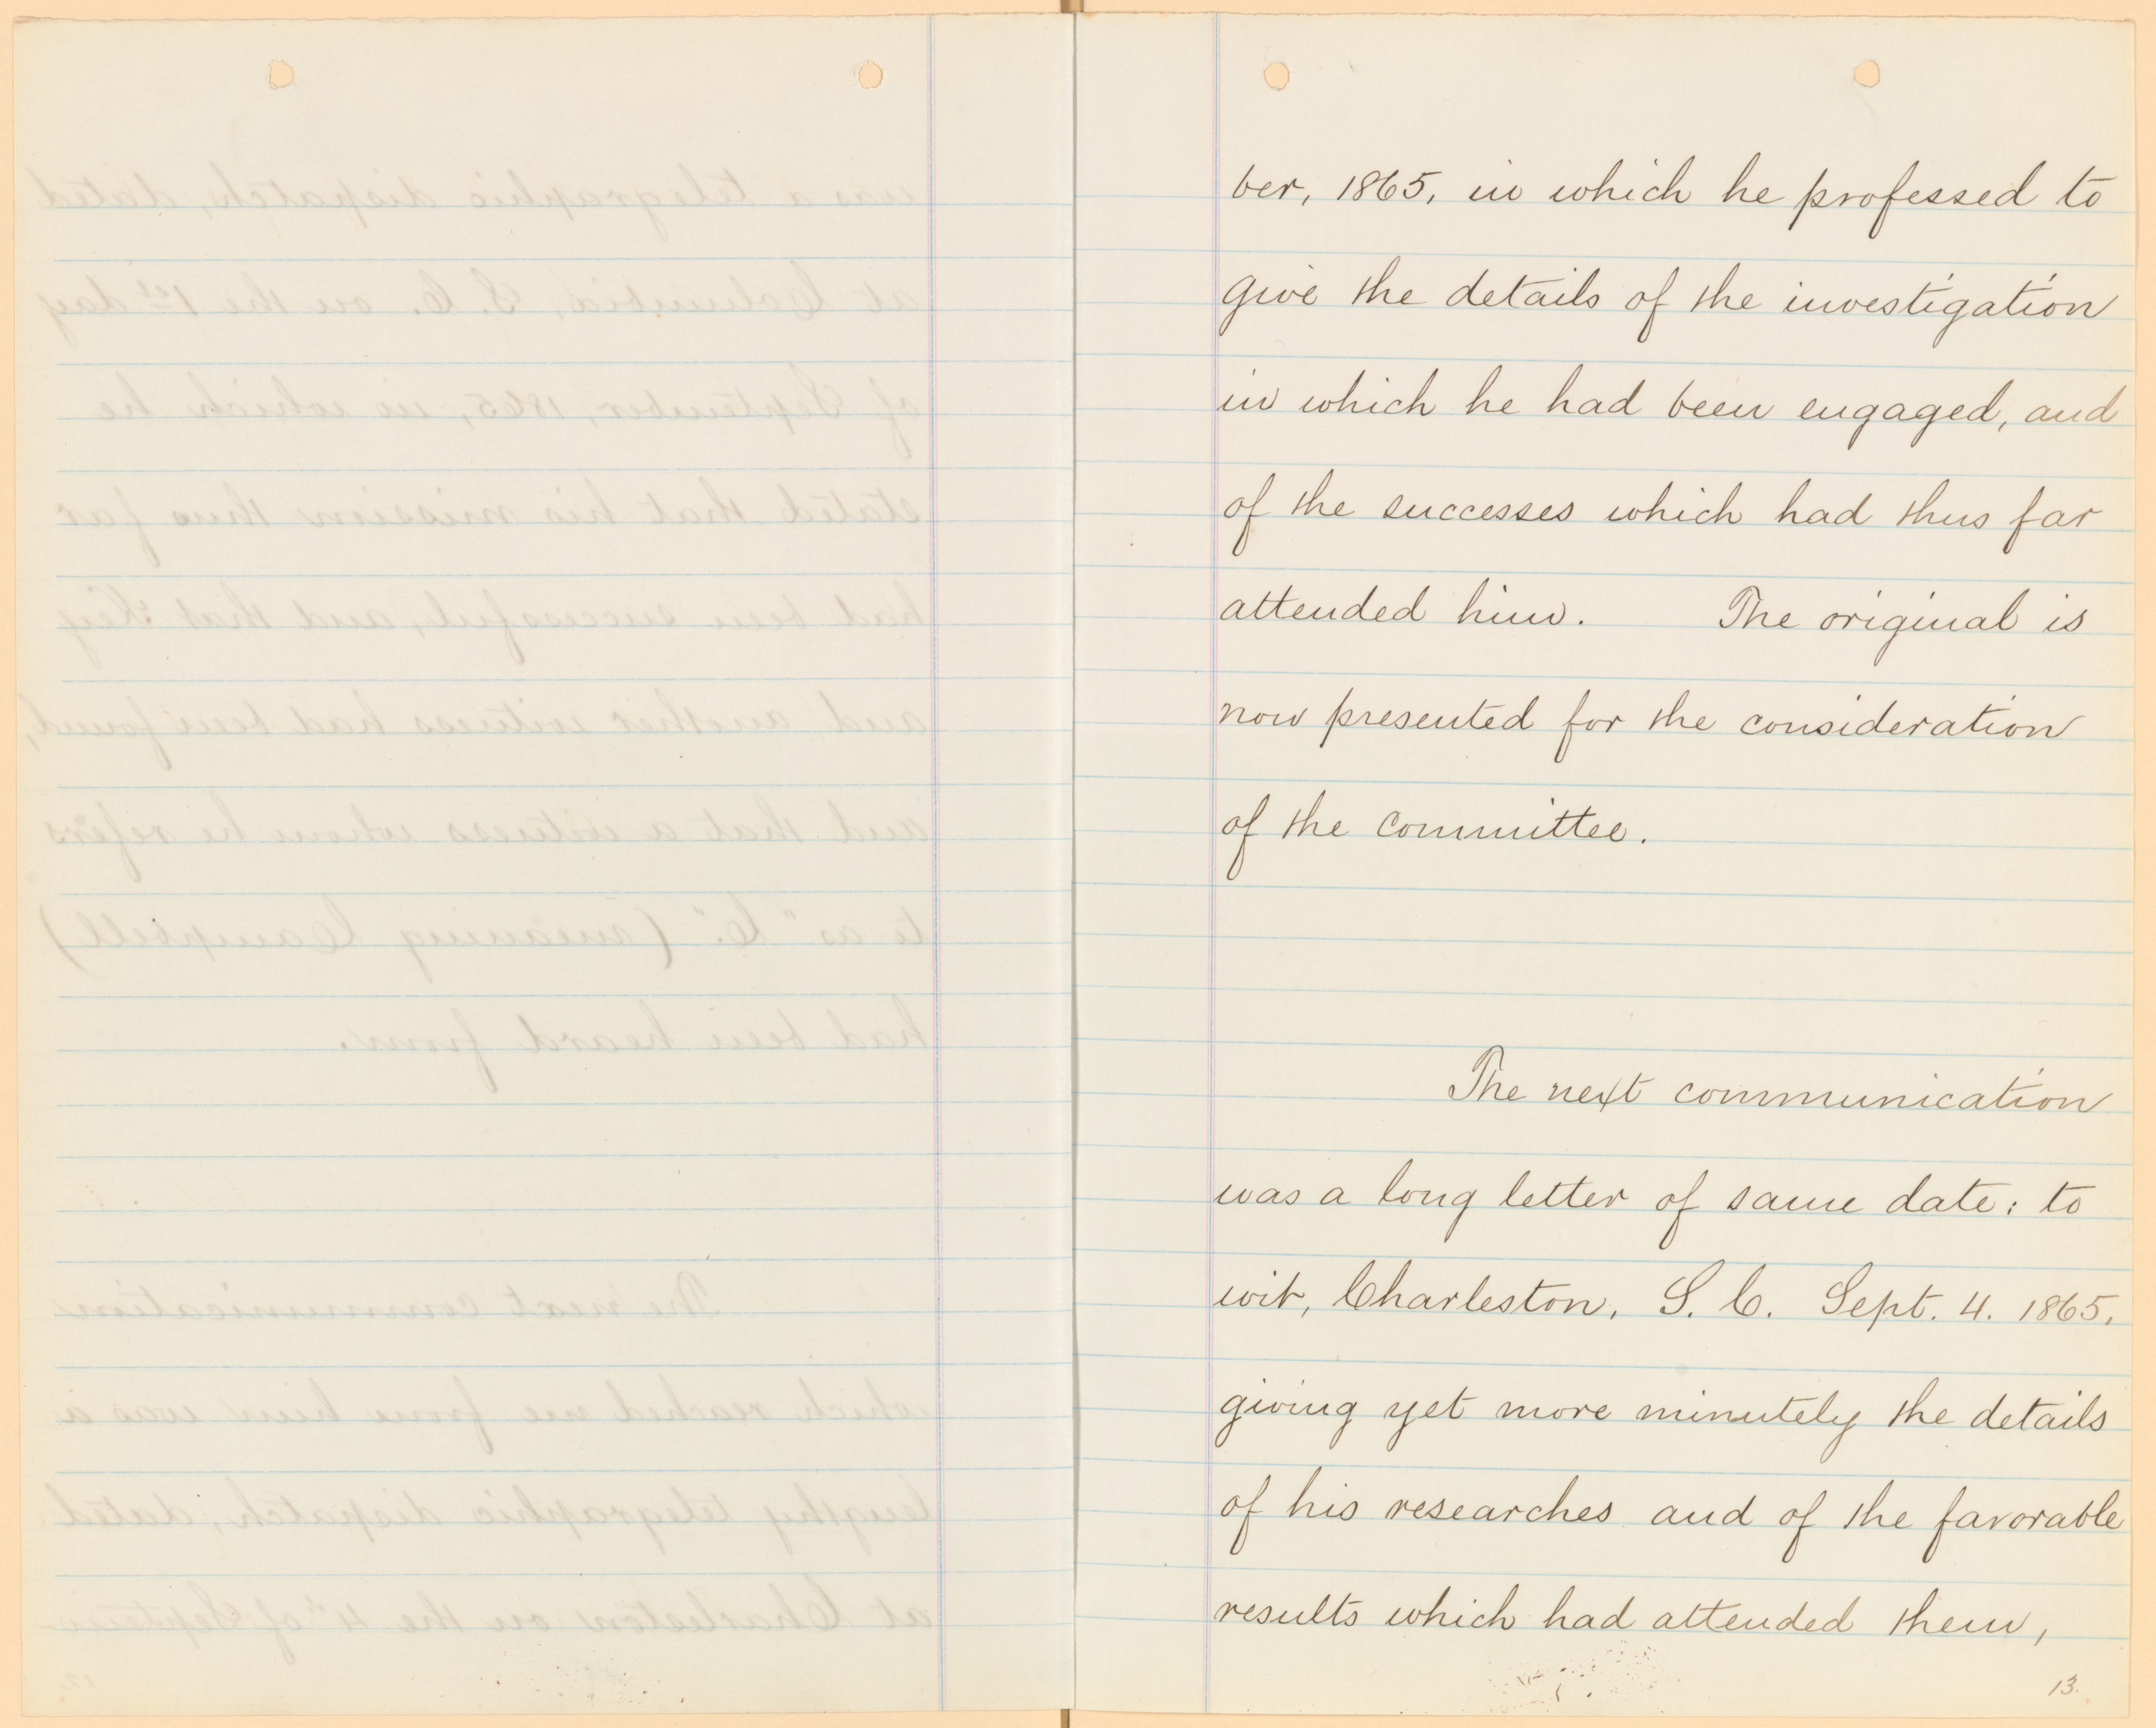 ber, 1865, in which he professed to
give the details of the investigation
in which he had been engaged, and
of the successes which had thus far
attended him. The original is
now presented for the consideration
of the committee.
The next communication
was a long letter of same date: to
wit, Charleston, S. C. Sept. 4. 1865,
giving yet more minutely the details
of his researches and of the favorable
results which had attended them,
13.